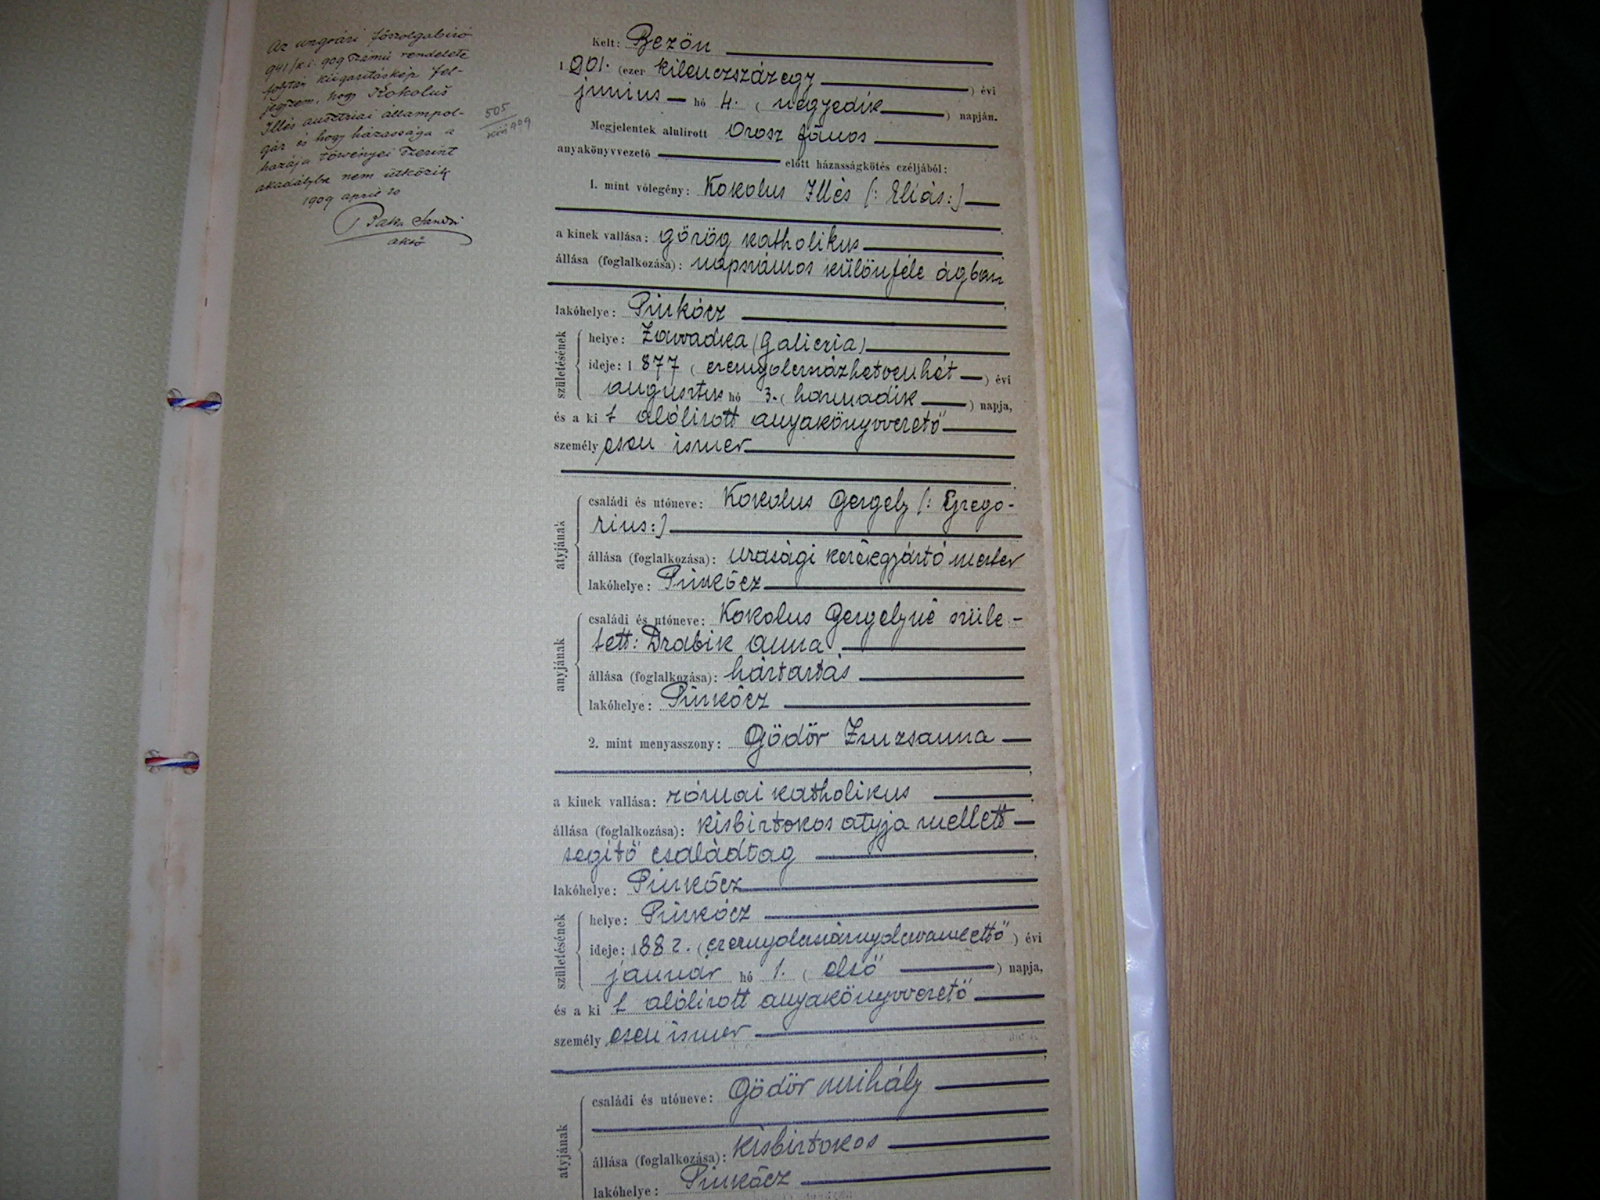 Az ungvári főszolgabíró
941/ki. 909 számú rendelete
folytán kiigazításkép fel-
jegyzem, hogy Kokolus
Illés ausztriai állampol-
gár és hogy házassága a
hazája törvényei szerint
akadályba nem ütközik
1909 april 20
505
909
Kelt: Bezön
1901. (ezer kilenczszázegy ) évi
junius hó 4. ( negyedik ) napján.
Megjelentek alulirott Orosz János
anyakönyvvezető előtt házasságkötés czéljából:
1. mint vőlegény: Kokolus Illés (: Eliás:)
a kinek vallása: görög katholikus
állása (foglalkozása): napszámos különféle ágban
lakóhelye: Pinkócz
születésének
helye: Zawadka (Galiczia)
ideje: 1877 ( ezernyolcszázhetvenhét ) évi
augusztus hó 3. ( harmadik ) napja,
és a ki t alólirott anyakönyvvezető
személyesen ismer
atyjának
családi és utóneve: Kokolus Gergely (: Grego-
rius:)
állása (foglalkozása): urasági kerékgyártó mester
lakóhelye: Pinkócz
anyjának
családi és utóneve: Kokolus Gergelyné szüle-
tett: Drabik Anna
állása (foglalkozása): háztartás
lakóhelye: Pinkócz
2. mint menyasszony: Gödör Zsuzsanna
a kinek vallása: római katholikus
állása (foglalkozása): kisbirtokos atyja mellett
segítő családtag
lakóhelye: Pinkócz
születésének
helye: Pinkócz
ideje: 1882. ( ezernyolcszáznyolcvankettő ) évi
január hó 1. ( első ) napja,
és a ki t alólirott anyakönyvvezető
személyesen ismer
atyjának
családi és utóneve: Gödör Mihály
állása (foglalkozása): kisbirtokos
lakóhelye: Pinkócz